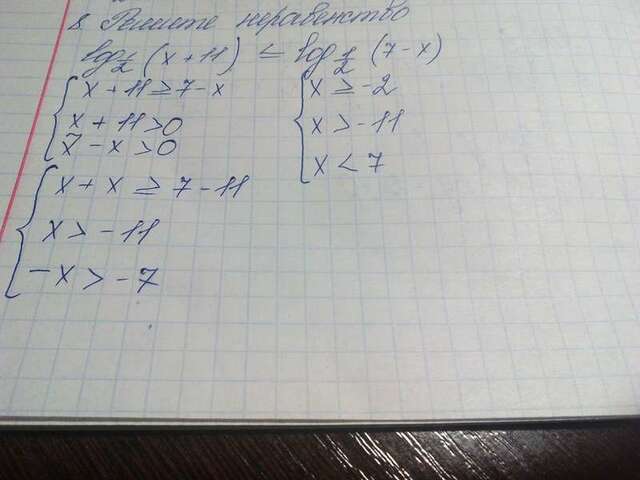 8. Решите неравенство
log 1/2 (x + 11) ≤ log 1/2 (7 - x)
x + 11 ≥ 7 - x
x + 11 > 0
7 - x > 0
x + x ≥ 7 - 11
x > - 11
- x > - 7
x ≥ - 2
x > - 11
x < 7